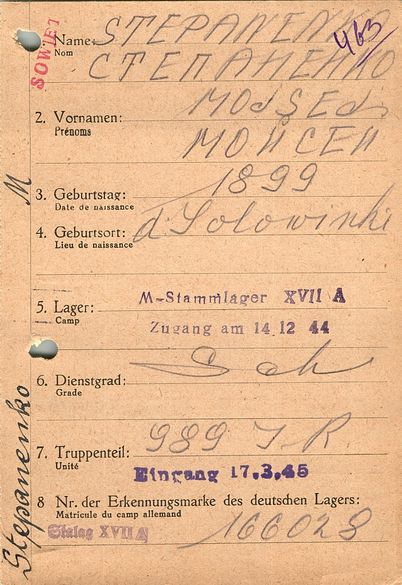 SOWJET
463
1. Name: STEPANENKO
Nom
СТЕПАНЕНКО
2. Vornamen:
Prénoms
МОИСЕИ
3. Geburtstag: 1899
Date de naissance
4. Geburtsort: d. Solowinki
Lieu de naissance
5. Lager: M-Stammlager XVII A
Camp
Zugang am 14 12 44
Sch
6. Dienstgrad:
Grade
7. Truppenteil: 989 J. R
Unité
Eingang 17.3.45
8 Nr. der Erkennungsmarke des deutschen Lagers:
Matricule du camp allemand
Stalag XVII A
166028
M
Stepanenko